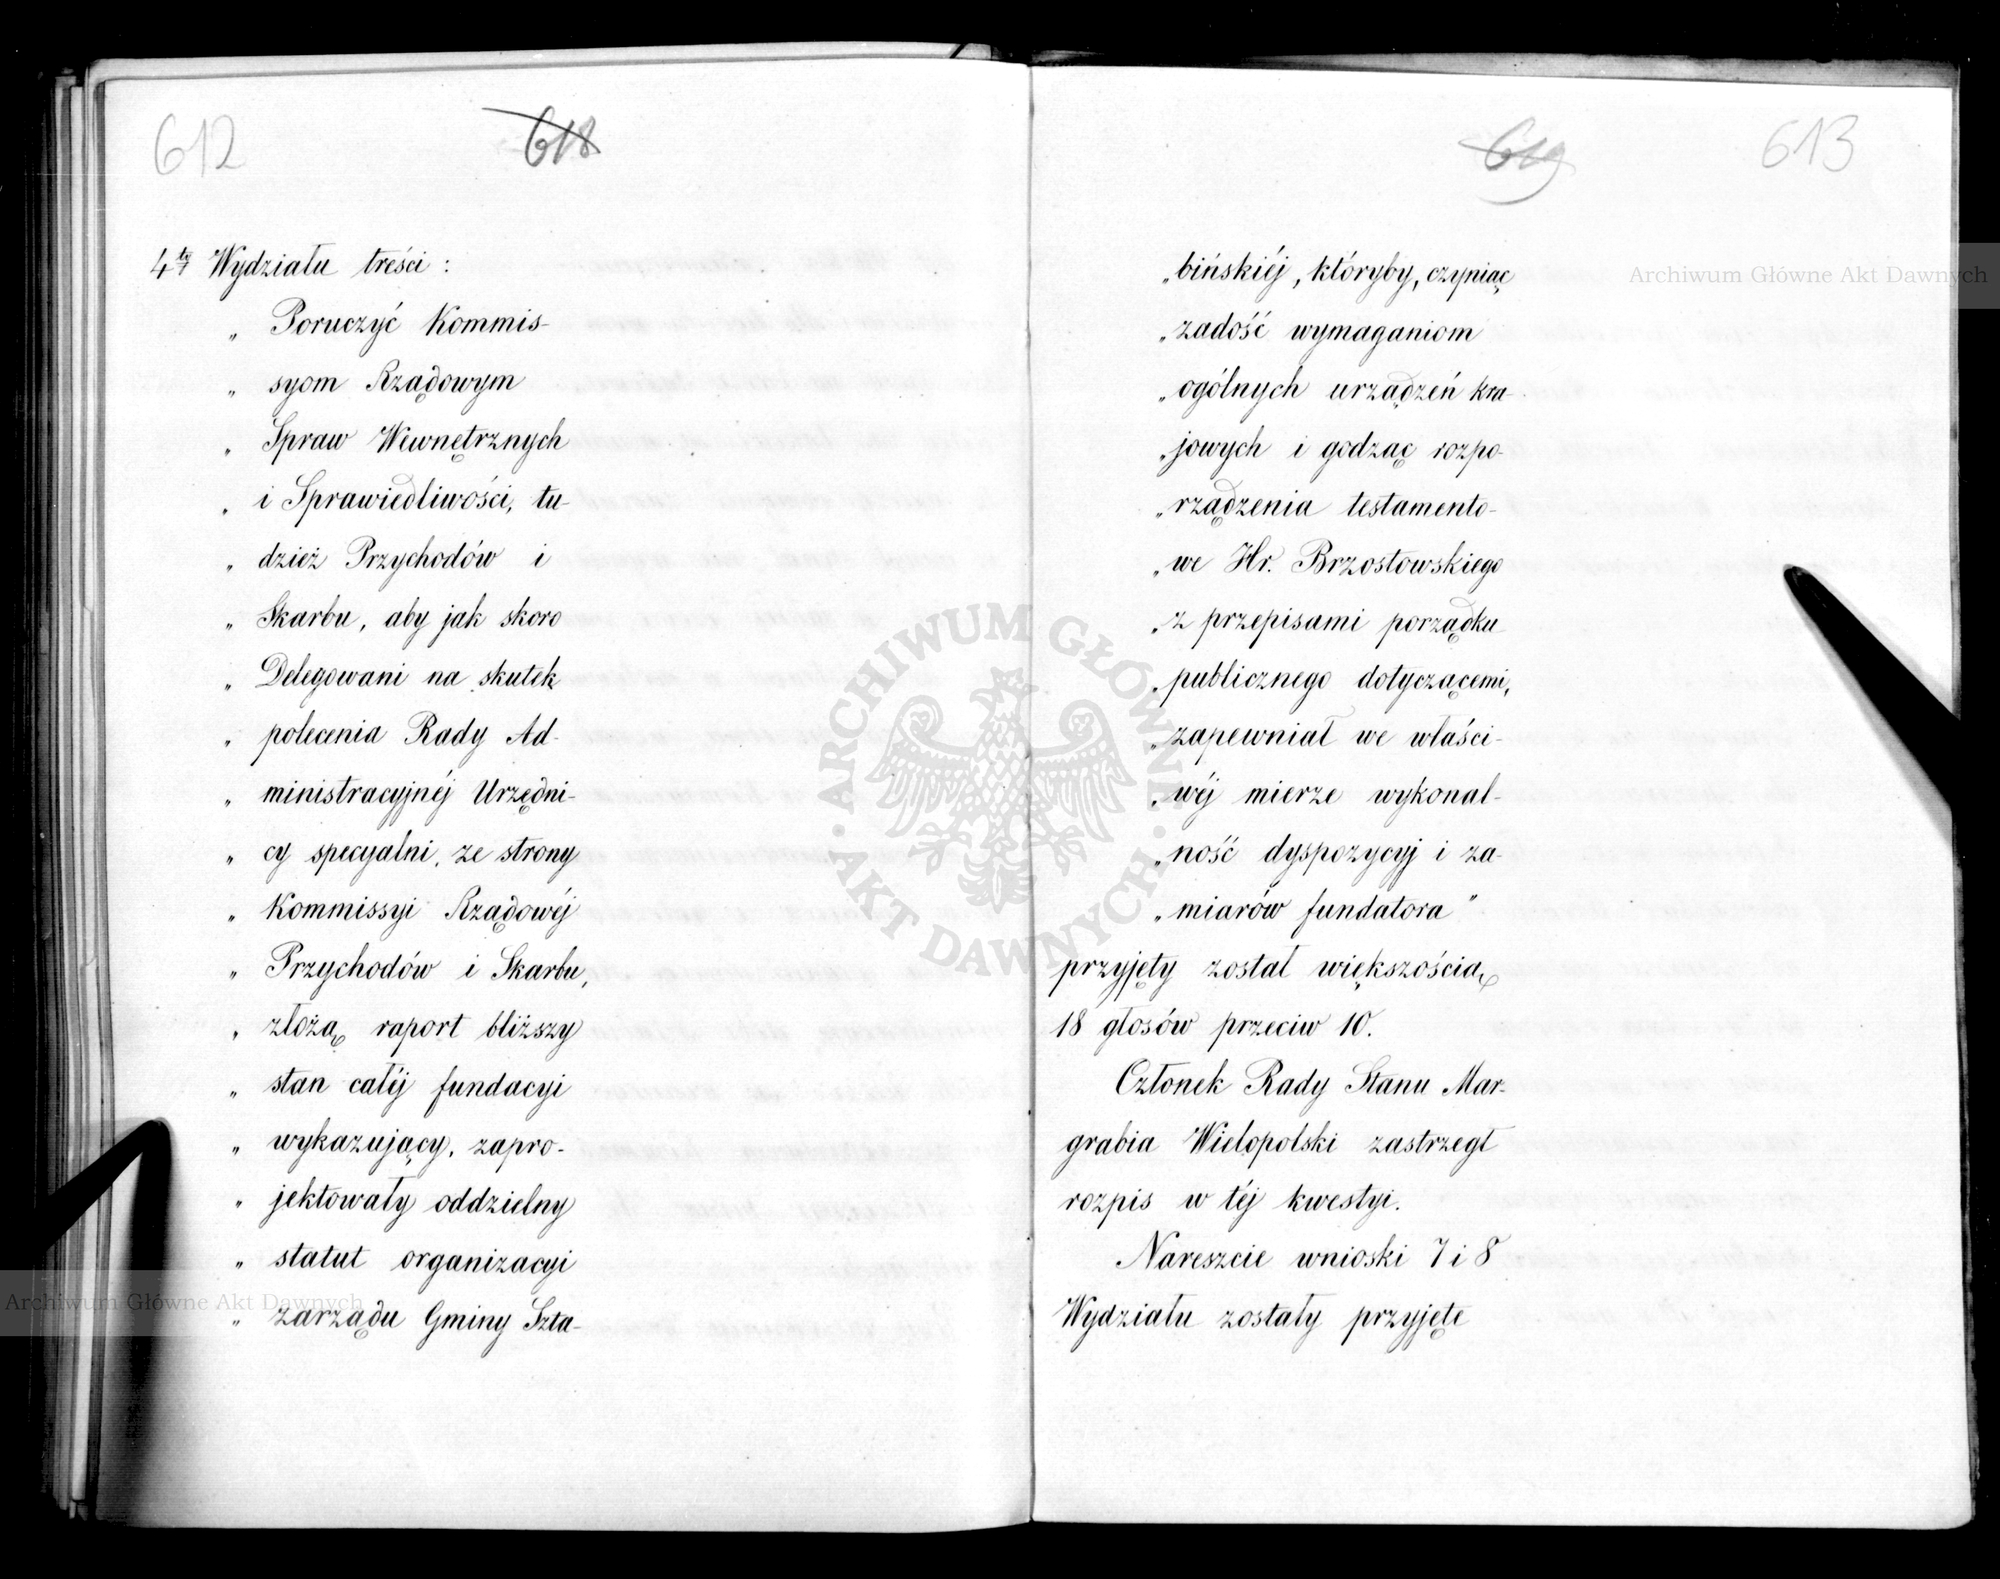 612
618
4ty Wydziału treści :
„ Poruczyć Kommis-
„ syom Rządowym
„ Spraw Wewnętrznych
„ i Sprawiedliwości, tu-
„ dzież Przychodów i
„ Skarbu, aby jak skoro
„ Delegowani na skutek
„ polecenia Rady Ad-
„ ministracyjnéj Urzędni-
„ cy specyalni, ze strony
„ Kommissyi Rządowéj
„ Przychodów i Skarbu,
„ złożą raport bliższy
„ stan całéj fundacyi
„ wykazujący, zapro-
„ jektowały oddzielny
„ statut organizacyi
„ zarządu Gminy Szta-
619
613
„bińskiéj, któryby, czyniąc
„zadość wymaganiom
„ogólnych urządzeń kra-
„jowych i godząc rozpo-
„rządzenia testamento-
„we Hr. Brzostowskiego
„z przepisami porządku
„publicznego dotyczącemi,
„zapewniał we właści-
„wéj mierze wykonal-
„ność dyspozycyj i za-
„miarów fundatora"
przyjęty został większością
18 głosów przeciw 10.
Członek Rady Stanu Mar-
grabia Wielopolski zastrzegł
rozpis w téj kwestyi.
Nareszcie wnioski 7 i 8
Wydziału zostały przyjęte
Archiwum Główne Akt Dawnych
Archiwum Główne Akt Dawnych
ARCHIWUM GŁÓWNE · AKT DAWNYCH ·